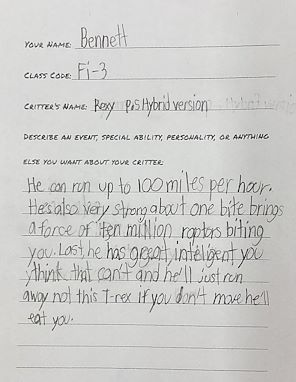 YOUR NAME: Bennett
CLASS CODE: Fi-3
CRITTER'S NAME: Rexy P.S Hybrid version
DESCRIBE AN EVENT, SPECIAL ABILITY, PERSONALITY, OR ANYTHING
ELSE YOU WANT ABOUT YOUR CRITTER:
He can run up to 100 miles per hour.
He's also very strong about one bite brings
a force of ten million raptors biting
you. Last he has great, inteligent you
think that can't and he'll just run
away not this T-rex if you don't move he'll
eat you.